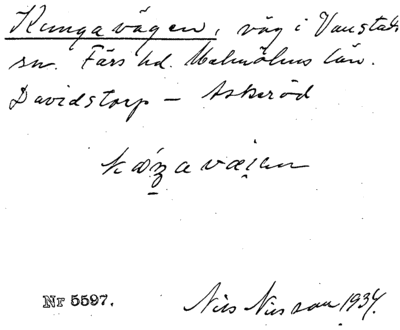 Kungavägen, väg i Vanstads
sn. Färs hd. Malmöhus län.
Davidstorp – Askeröd
Nr 5597.
Nils Nilsson 1934.